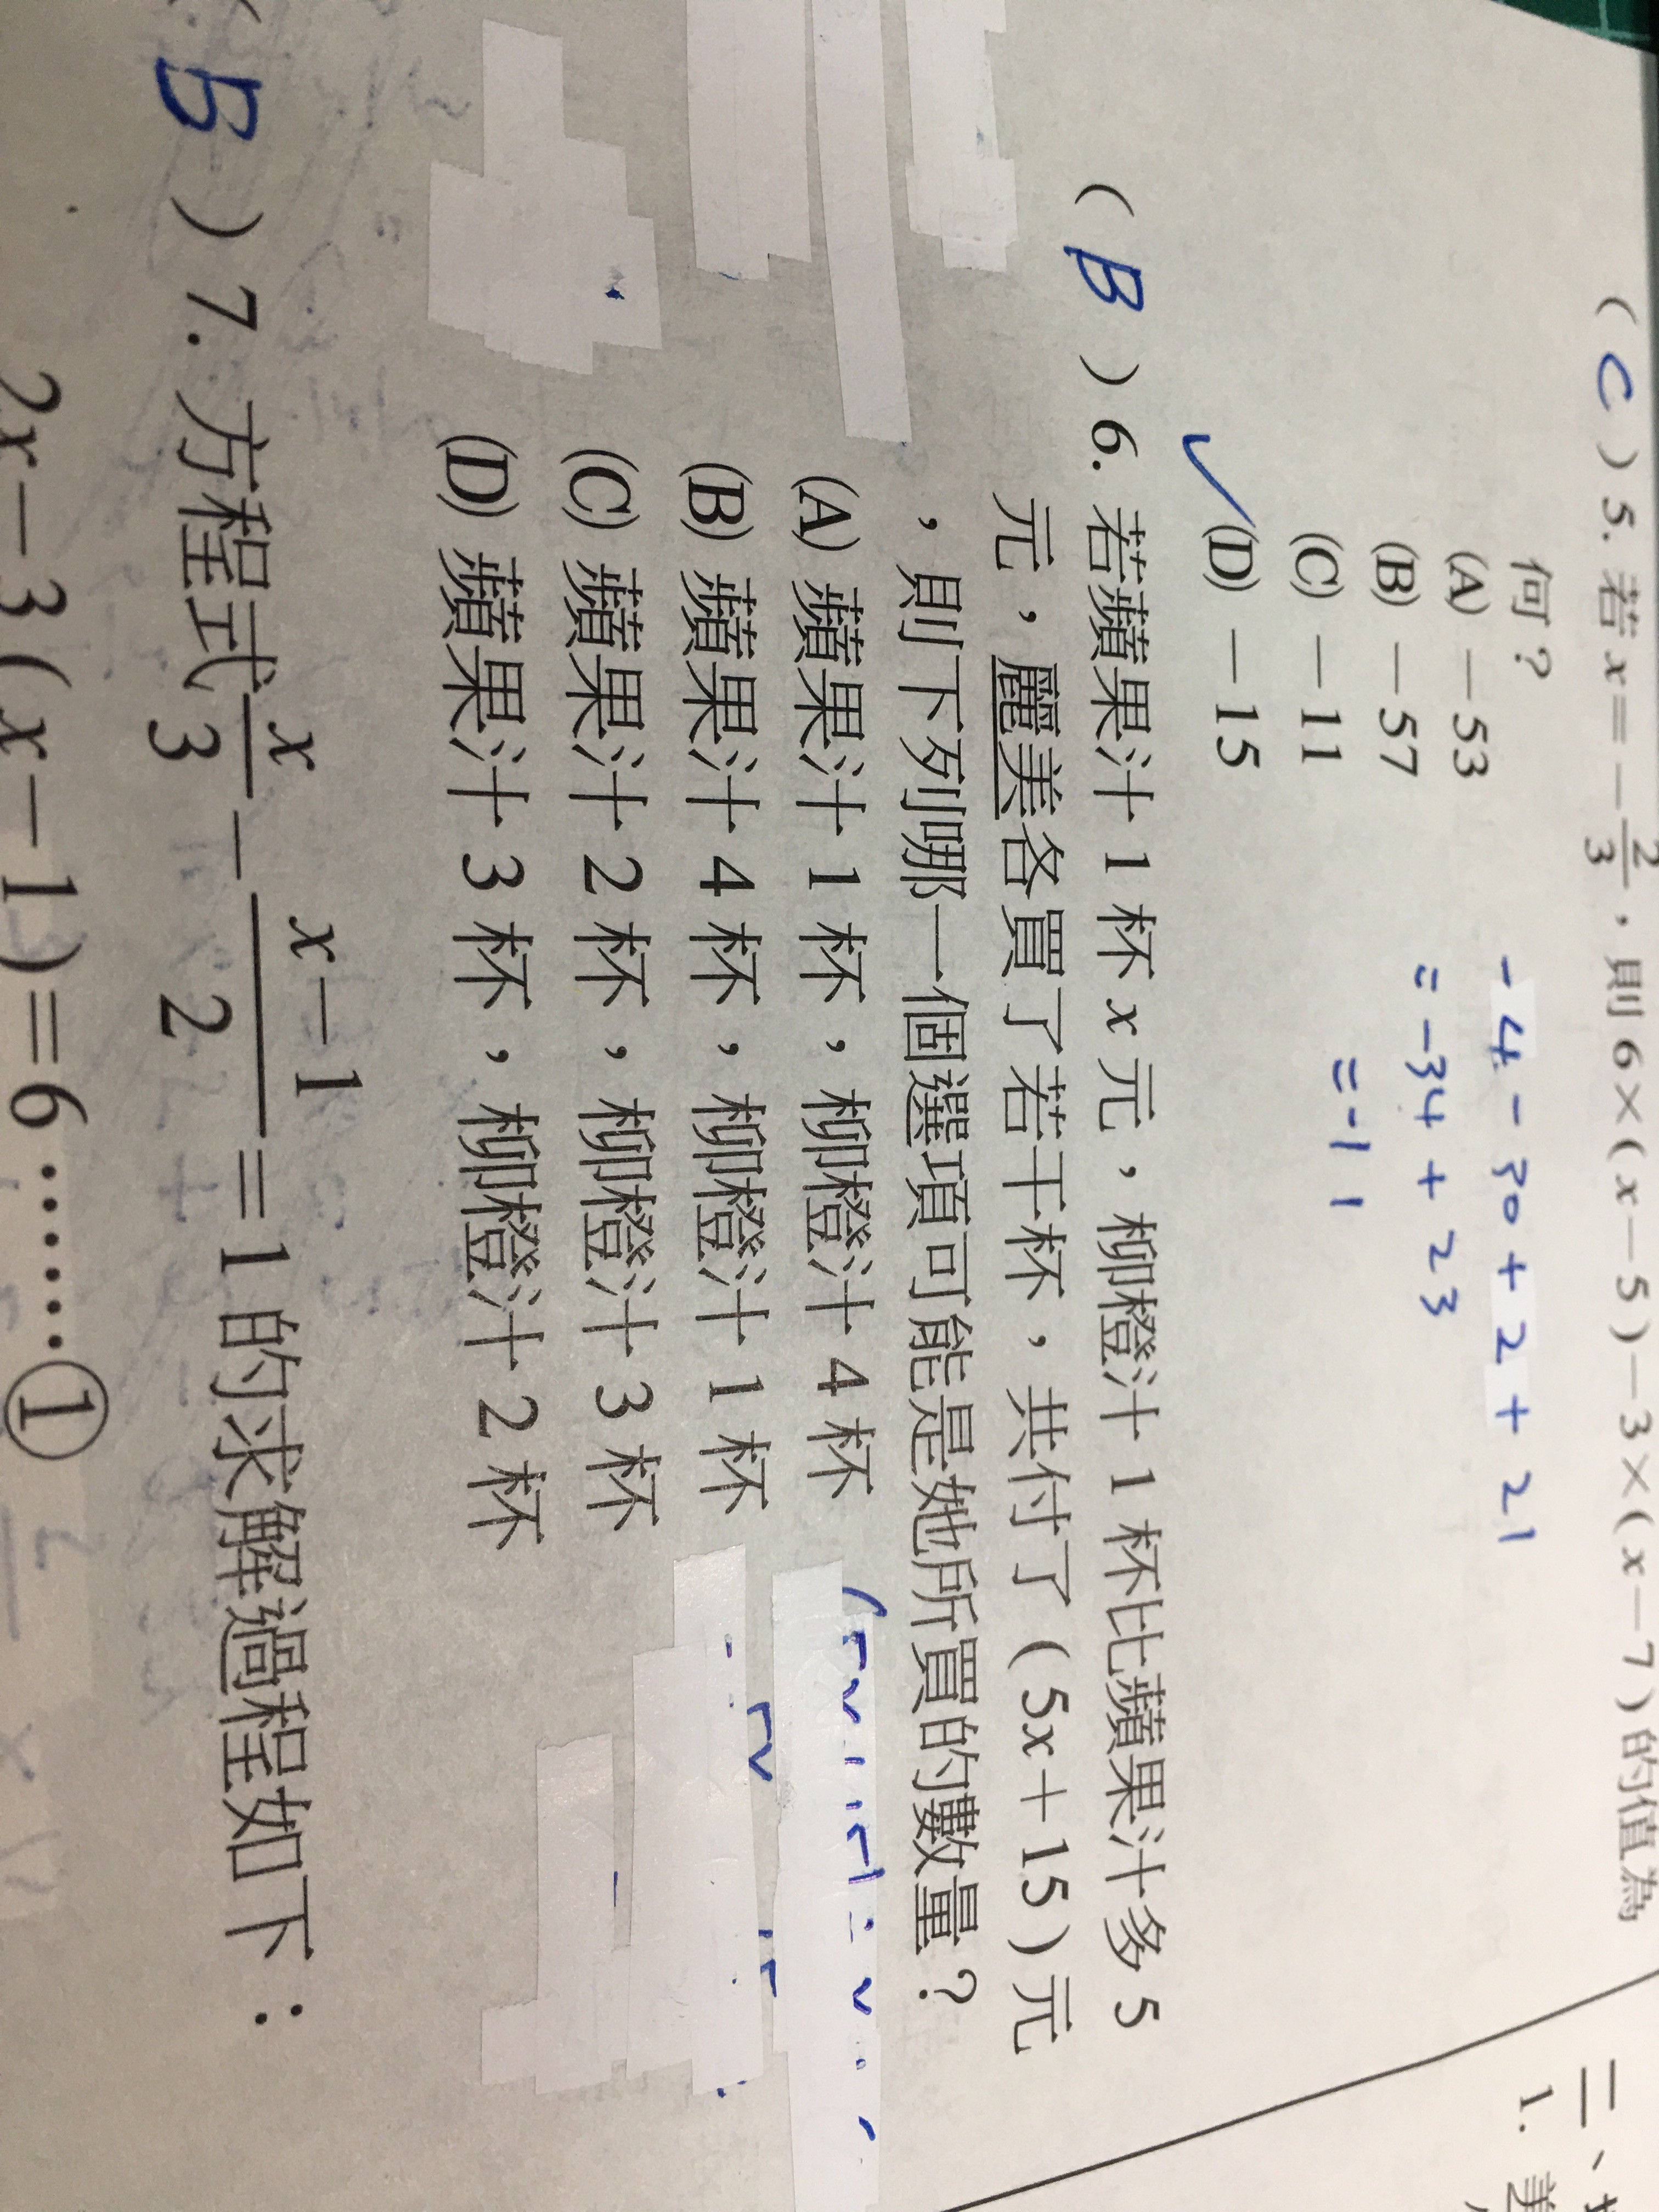 ( C ) 5. 若 x = -2/3，則 6×(x-5)-3×(x-7) 的值為
何？
(A) -53
(B) -57
(C) -11
✓(D) -15
-4-30+2+21
=-34+23
=-11
( B ) 6. 若蘋果汁 1 杯 x 元，柳橙汁 1 杯比蘋果汁多 5
元，麗美各買了若干杯，共付了 (5x+15) 元
，則下列哪一個選項可能是她所買的數量？
(A) 蘋果汁 1 杯，柳橙汁 4 杯
(B) 蘋果汁 4 杯，柳橙汁 1 杯
(C) 蘋果汁 2 杯，柳橙汁 3 杯
(D) 蘋果汁 3 杯，柳橙汁 2 杯
B ) 7. 方程式 x/3 - (x-1)/2 = 1 的求解過程如下：
2x-3(x-1)=6……①
二、
1. 美